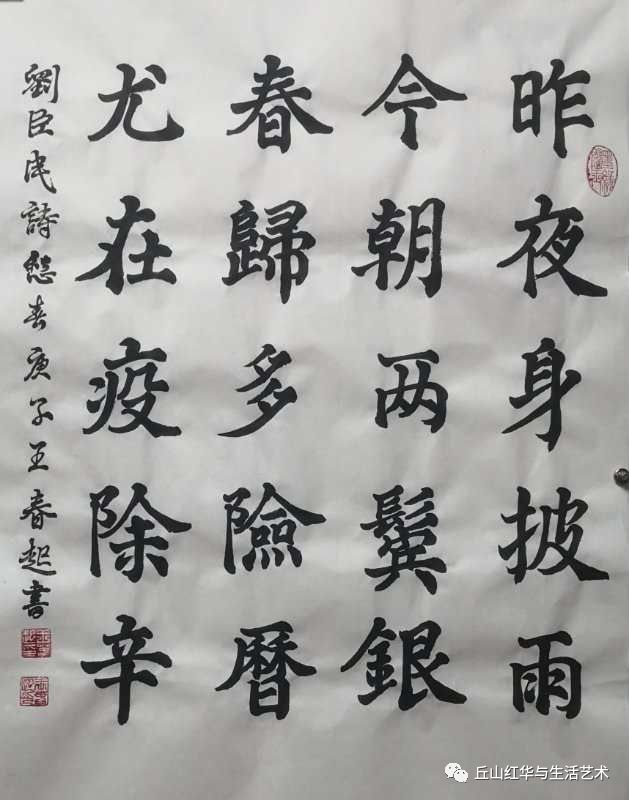 昨夜身披雨
今朝两鬓銀
春歸多險曆
尤在疫除辛
劉臣民詩愁春庚子王春起書
丘山红华与生活艺术